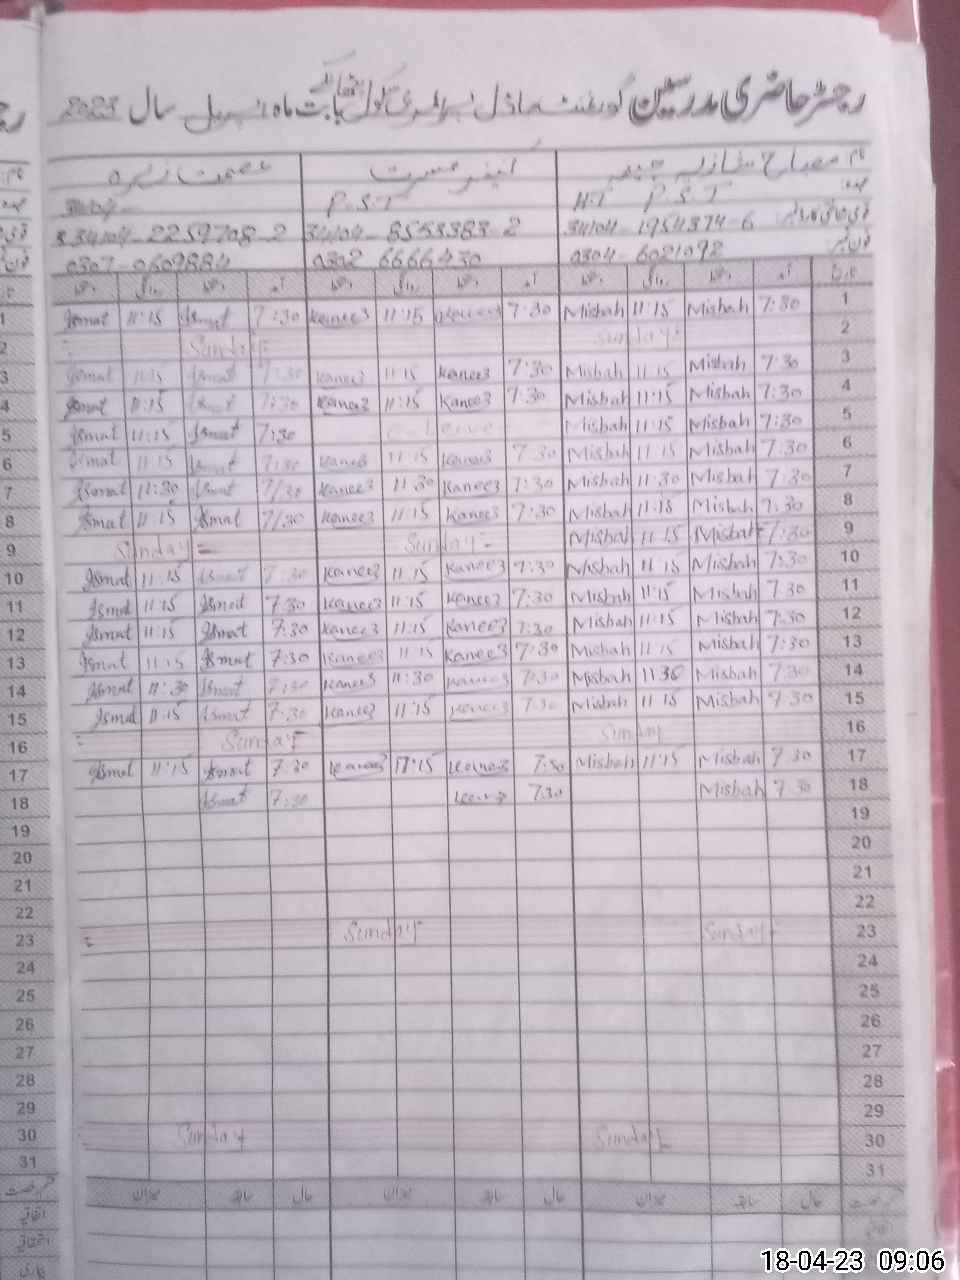 رجسٹر حاضری مدرسین گورنمنٹ ماڈل پرائمری سکول بابت ماہ اپریل سال 2023
نام مصباح شازیہ چیمہ کنیز مسرت عصمت زہرہ
عہدہ H.T P.S.T P.S.T
34104-1954374-6 34104-8553383-2 34104-2259708-2
فون نمبر 0304-6021092 0302 6666430 0307-0609884
تاریخ آمد دستخط روانگی دستخط آمد دستخط روانگی دستخط آمد دستخط روانگی دستخط
1 7:30 Misbah 11:15 Misbah 7:30 Kaneez 11:15 Kaneez 7:30 Ismat 11:15 Ismat
2 Sunday Sunday
3 7:30 Misbah 11:15 Misbah 7:30 Kaneez 11:15 Kaneez 7:30 Ismat 11:15 Ismat
4 7:30 Misbah 11:15 Misbah 7:30 Kaneez 11:15 Kaneez 7:30 Ismat 11:15 Ismat
5 7:30 Misbah 11:15 Misbah Leave 7:30 Ismat 11:15 Ismat
6 7:30 Misbah 11:15 Misbah 7:30 Kaneez 11:15 Kaneez 7:30 Ismat 11:15 Ismat
7 7:30 Misbah 11:30 Misbah 7:30 Kaneez 11:30 Kaneez 7:30 Ismat 11:30 Ismat
8 7:30 Misbah 11:15 Misbah 7:30 Kaneez 11:15 Kaneez 7:30 Ismat 11:15 Ismat
9 7:30 Misbah 11:15 Misbah Sunday Sunday
10 7:30 Misbah 11:15 Misbah 7:30 Kaneez 11:15 Kaneez 7:30 Ismat 11:15 Ismat
11 7:30 Misbah 11:15 Misbah 7:30 Kaneez 11:15 Kaneez 7:30 Ismat 11:15 Ismat
12 7:30 Misbah 11:15 Misbah 7:30 Kaneez 11:15 Kaneez 7:30 Ismat 11:15 Ismat
13 7:30 Misbah 11:15 Misbah 7:30 Kaneez 11:15 Kaneez 7:30 Ismat 11:15 Ismat
14 7:30 Misbah 11:30 Misbah 7:30 Kaneez 11:30 Kaneez 7:30 Ismat 11:30 Ismat
15 7:30 Misbah 11:15 Misbah 7:30 Kaneez 11:15 Kaneez 7:30 Ismat 11:15 Ismat
16 Sunday Sunday
17 7:30 Misbah 11:15 Misbah 7:30 Kaneez 11:15 Kaneez 7:30 Ismat 11:15 Ismat
18 7:30 Misbah 7:30 Kaneez 7:30 Ismat
19
20
21
22
23 Sunday Sunday
24
25
26
27
28
29
30 Sunday Sunday
31
حال سابقہ میزان حال سابقہ میزان حال سابقہ میزان
18-04-23 09:06